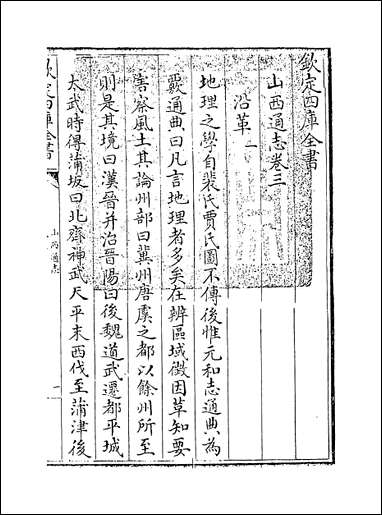 欽定四庫全書
山西通志卷三
沿革一
地理之學自裴氏賈氏圖不傳後惟元和志通典為
覈通典曰凡言地理者多矣在辨區域徵因革知要
害察風土其論州部曰冀州唐虞之都以餘州所至
則是其境曰漢晉并治晉陽曰後魏道武遷都平城
太武時得蒲坂曰北齊神武天平末西伐至蒲津後
欽定四庫全書
山西通志
一